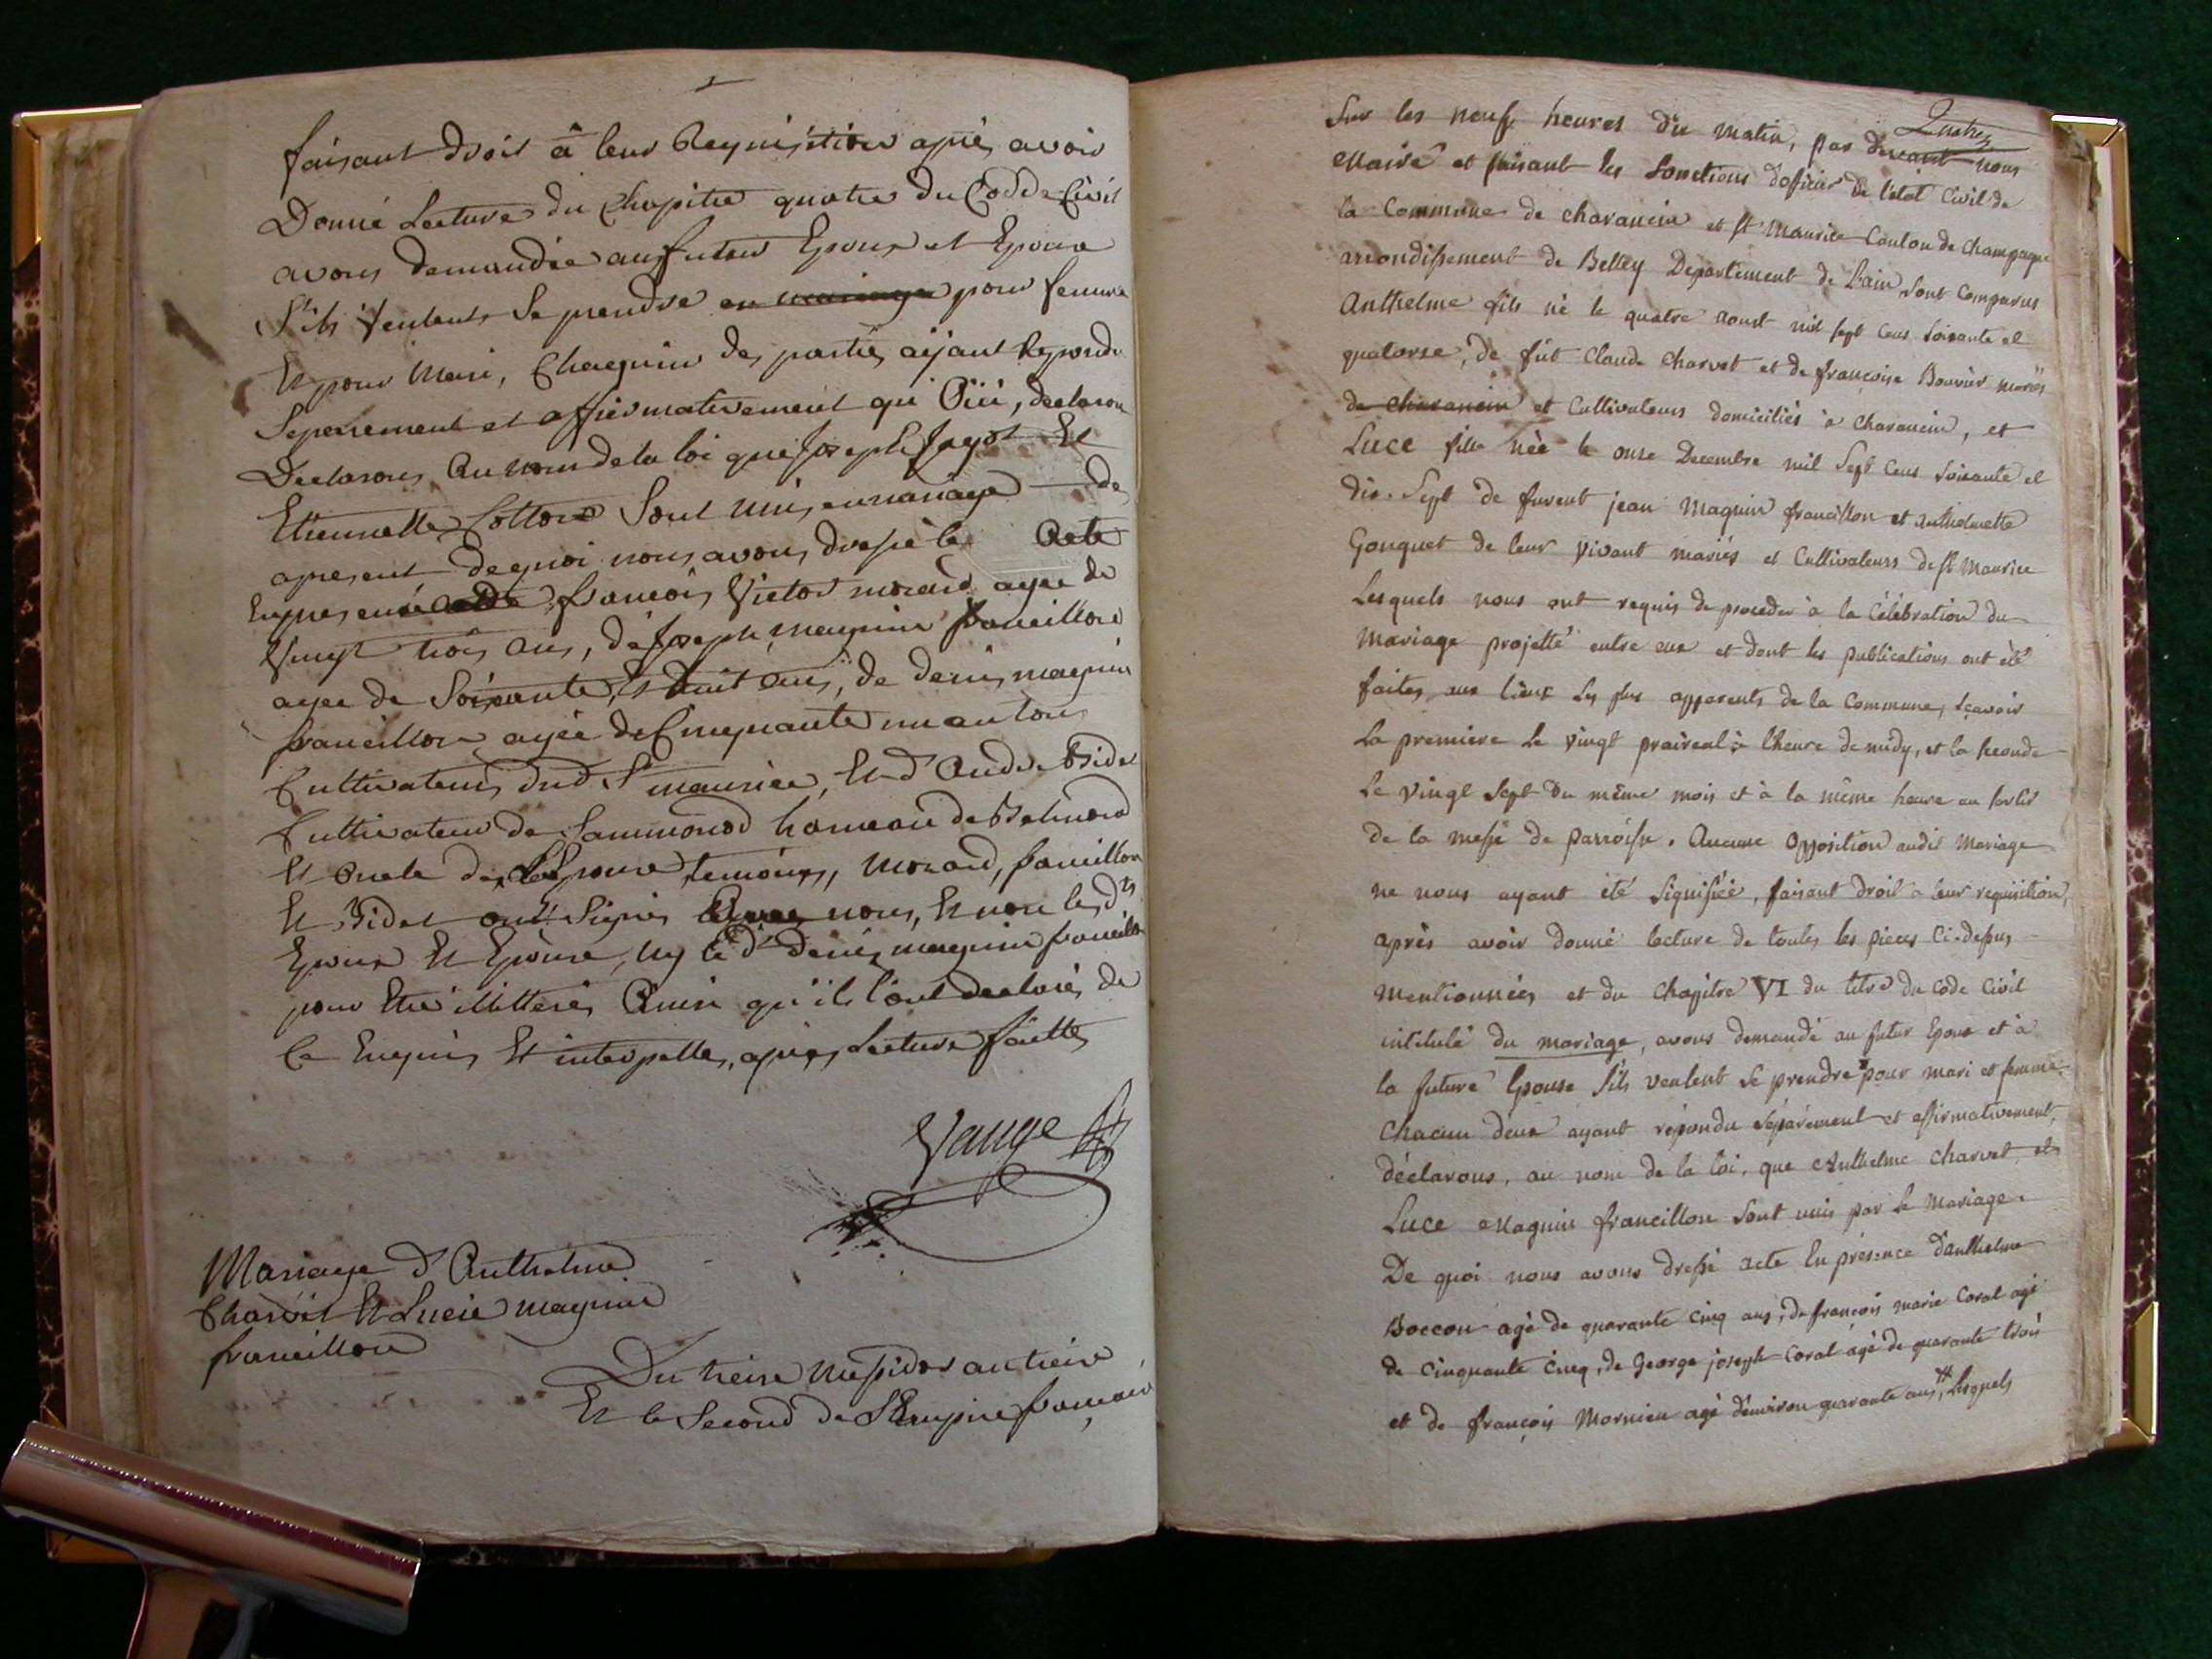 faisant droit à leur Requisition après avoir
Donné Lecture du Chapitre quatre du Codde Civil
avons demandée aux futeur Epoux et Epouse
S'ils Veulent Se prendre en mariage pour femme
Et pour Mari, Chaqu'un des partis aÿant Repondu
Separement et affirmativement qui Oüi, declaron
Declarons Au nom de la loi que Joseph Jagot Et
Etiennette Cottare Sont Unis en mariage de
apresent de quoi nous avons dressé le Acte
En presence de françois Victor morard agée de
Vingt trois ans, de Joseph magnin francillon
agee de Soixante huit ans, de denis magnin
francillon agée de Cinquante un an tous
Cultivateurs dud St maurice, Et d'André Bidet
Cultivateur de Sammonod hameau de Belmond
Et oncle de L'Epouse temoins, Morard, francillon
Et Bidet ont Signés avec nous, Et non les dts
Epoux Et Epouse, ny le dt denis magnin francillon
pour Etre illitterés Ainsi qu'ils l'ont declarés de
Ce Enquis Et interpelles, après Lecture faitte
Vauge
Mariage d'Anthelme
Charvet Et Lucie magnin
francillon
Du treize Messidor an treize
Et le Second de L'Empire francais
Sur les neuf heures du matin, par devant nous
Maire et faisant les fonctions d'officier de l'état Civil de
la Commune de charancin et St Maurice Canton de Champagne
arrondissement de Belley Departement de L'ain Sont Comparus
Anthelme fils né le quatre aoust mil sept Cens Soixante et
quatorze, de fût Claude Charvet et de françoise Bouvier mariés
de charancin et Cultivateurs domiciliés à Charancin, et
Luce fille née le onze Decembre mil Sept Cens Soixante et
dix-Sept de furent jean Magnin francillon et Anthelmette
Gonguet de leur vivant mariés et Cultivateurs de St Maurice
Lesquels nous ont requis de proceder à la Célébration du
Mariage projetté entre eux et dont les publications ont été
faites aux lieux les plus apparents de la Commune, sçavoir
La premiere Le vingt praireal à l'heure de midy, et la seconde
Le vingt Sept du même mois et à la même heure au sortir
de la messe de parroisse. Aucune opposition audit Mariage
ne nous ayant été Signifiée, faisant droit à leur requisition,
après avoir donné lecture de toutes les pieces Ci-dessus
Mentionnées et du Chapitre VI du titre du Code Civil
intitulé du mariage, avons demandé au futur Epoux et à
la future Epouse S'ils veulent Se prendre pour mari et femme.
Chacun deux ayant répondu Séparément et affirmativement,
déclarons, au nom de la loi, que Anthelme Charvet et
Luce Magnin francillon Sont unis par le Mariage.
De quoi nous avons dressé acte En présence d'anthelme
Boccon agé de quarante cinq ans, de françois marie Coral agé
de Cinquante cinq, de George joseph Coral agé de quarante trois
et de françois Mornieu agé d'environ quarante ans, Lesquels